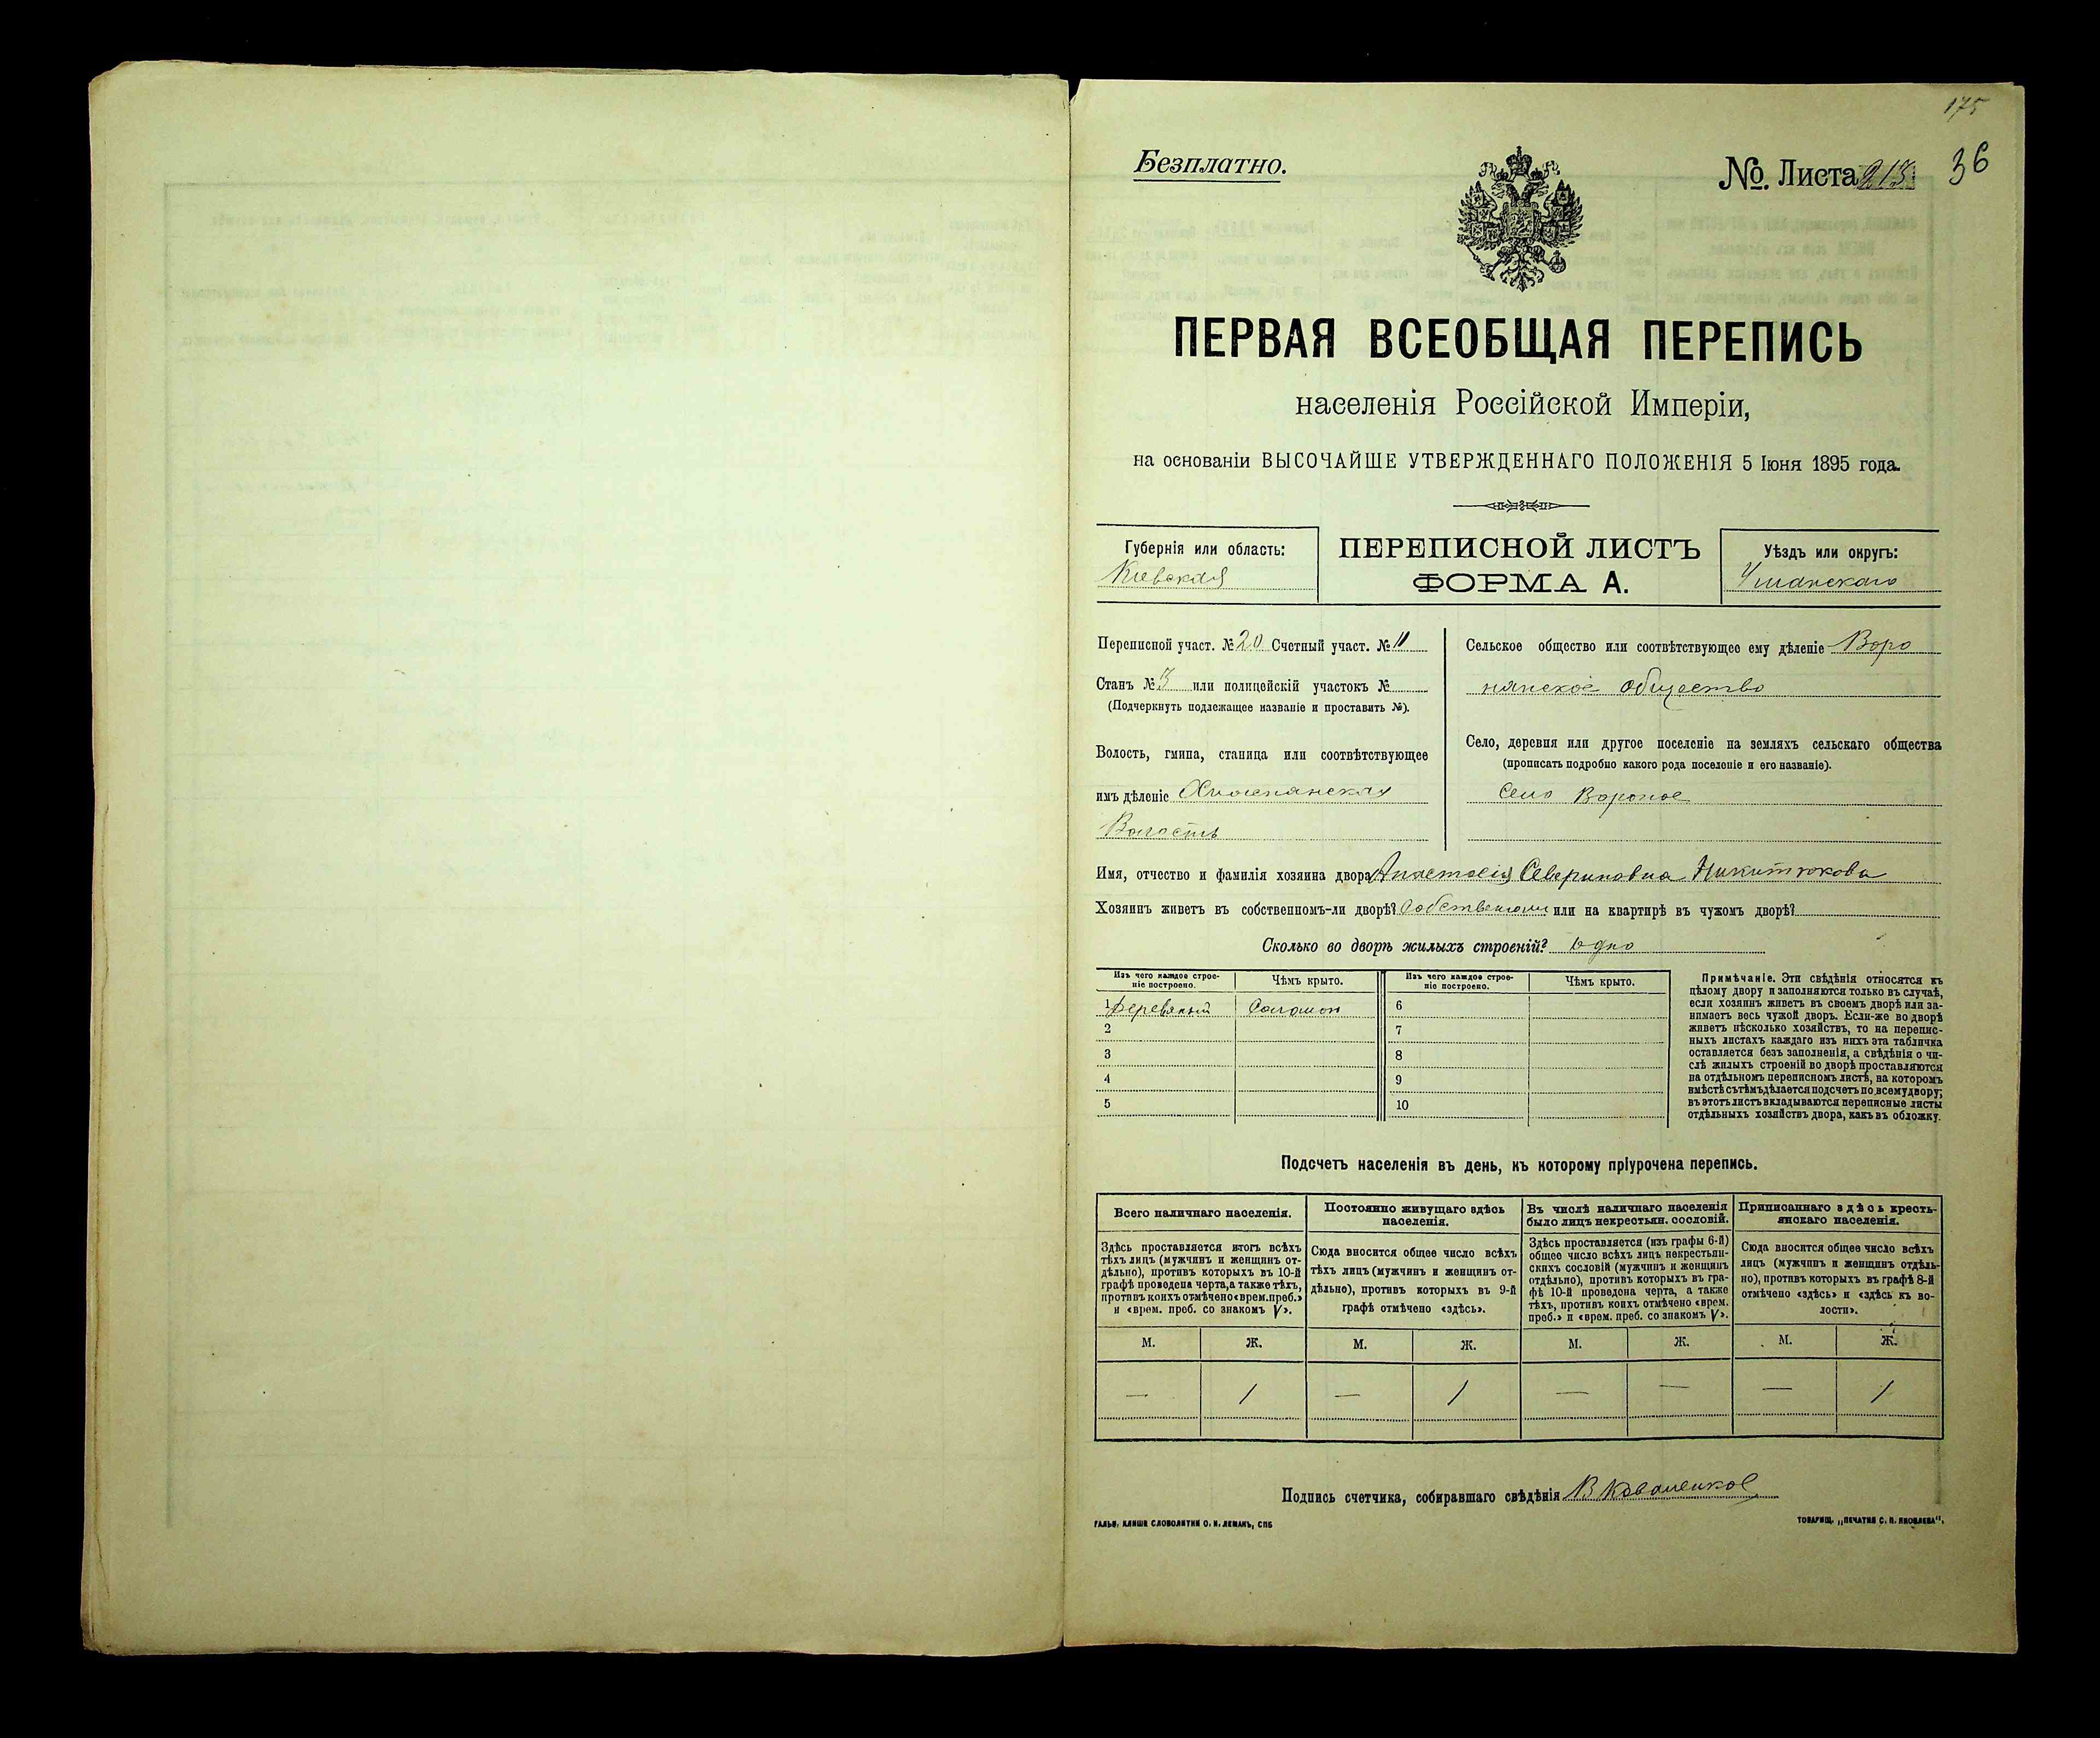 175
Безплатно.
No. Листа 213 36
ПЕРВАЯ ВСЕОБЩАЯ ПЕРЕПИСЬ
населенія Россійской Имперіи,
на основаніи ВЫСОЧАЙШЕ УТВЕРЖДЕННАГО ПОЛОЖЕНІЯ 5 Іюня 1895 года.
Губернія или область:
Кіевская
ПЕРЕПИСНОЙ ЛИСТЪ
ФОРМА А.
Уѣздъ или округъ:
Уманскаго
Переписной участ. № 20 Счетный участ. № 11
Станъ № 3 или полицейскій участокъ №
(Подчеркнуть подлежащее названіе и проставить №).
Волость, гмина, станица или соотвѣтствующее
имъ дѣленіе
Волость
Сельское общество или соотвѣтствующее ему дѣленіе Воро
нянское общество
Село, деревня или другое поселеніе на земляхъ сельскаго общества
(прописать подробно какого рода поселеніе и его названіе).
Село Вороное
Имя, отчество и фамилія хозяина двора Анастасія Севериновна Никитюкова
Хозяинъ живетъ въ собственномъ-ли дворѣ? Собственном или на квартирѣ въ чужомъ дворѣ?
Сколько во дворѣ жилыхъ строеній? одно
Изъ чего каждое строе-
ніе построено.
Чѣмъ крыто.
Изъ чего каждое строе-
ніе построено.
Чѣмъ крыто.
1 Деревяный Соломою 6
2 7
3 8
4 9
5 10
Примѣчаніе. Эти свѣдѣнія относятся къ
цѣлому двору и заполняются только въ случаѣ,
если хозяинъ живетъ въ своемъ дворѣ или за-
нимаетъ весь чужой дворъ. Если-же во дворѣ
живетъ нѣсколько хозяйствъ, то на перепис-
ныхъ листахъ каждаго изъ нихъ эта табличка
оставляется безъ заполненія, а свѣдѣнія о чи-
слѣ жилыхъ строеній во дворѣ проставляются
на отдѣльномъ переписномъ листѣ, на которомъ
вмѣстѣ съ тѣмъ дѣлается подсчетъ по всему двору;
въ этотъ листъ вкладываются переписные листы
отдѣльныхъ хозяйствъ двора, какъ въ обложку.
Подсчетъ населенія въ день, къ которому пріурочена перепись.
Всего наличнаго населенія.
Здѣсь проставляется итогъ всѣхъ
тѣхъ лицъ (мужчинъ и женщинъ от-
дѣльно), противъ которыхъ въ 10-й
графѣ проведена черта, а также тѣхъ,
противъ коихъ отмѣчено «врем. преб.»
и «врем. преб. со знакомъ V».
Постоянно живущаго здѣсь
населенія.
Сюда вносится общее число всѣхъ
тѣхъ лицъ (мужчинъ и женщинъ от-
дѣльно), противъ которыхъ въ 9-й
графѣ отмѣчено «здѣсь».
Въ числѣ наличнаго населенія
было лицъ некрестьян. сословій.
Здѣсь проставляется (изъ графы 6-й)
общее число всѣхъ лицъ некрестьян-
скихъ сословій (мужчинъ и женщинъ
отдѣльно), противъ которыхъ въ гра-
фѣ 10-й проведена черта, а также
тѣхъ, противъ коихъ отмѣчено «врем.
преб.» и «врем. преб. со знакомъ V».
Приписаннаго здѣсь кресть-
янскаго населенія.
Сюда вносится общее число всѣхъ
лицъ (мужчинъ и женщинъ отдѣль-
но), противъ которыхъ въ графѣ 8-й
отмѣчено «здѣсь» и «здѣсь къ во-
лости».
М. Ж. М. Ж. М. Ж. М. Ж.
— 1 — 1 — — — 1
Подпись счетчика, собиравшаго свѣдѣнія В Коваленков
ГАЛЬВ. КЛИШЕ СЛОВОЛИТНИ О. И. ЛЕМАНЪ, СПБ
ТОВАРИЩ. „ПЕЧАТНЯ С. П. ЯКОВЛЕВА".